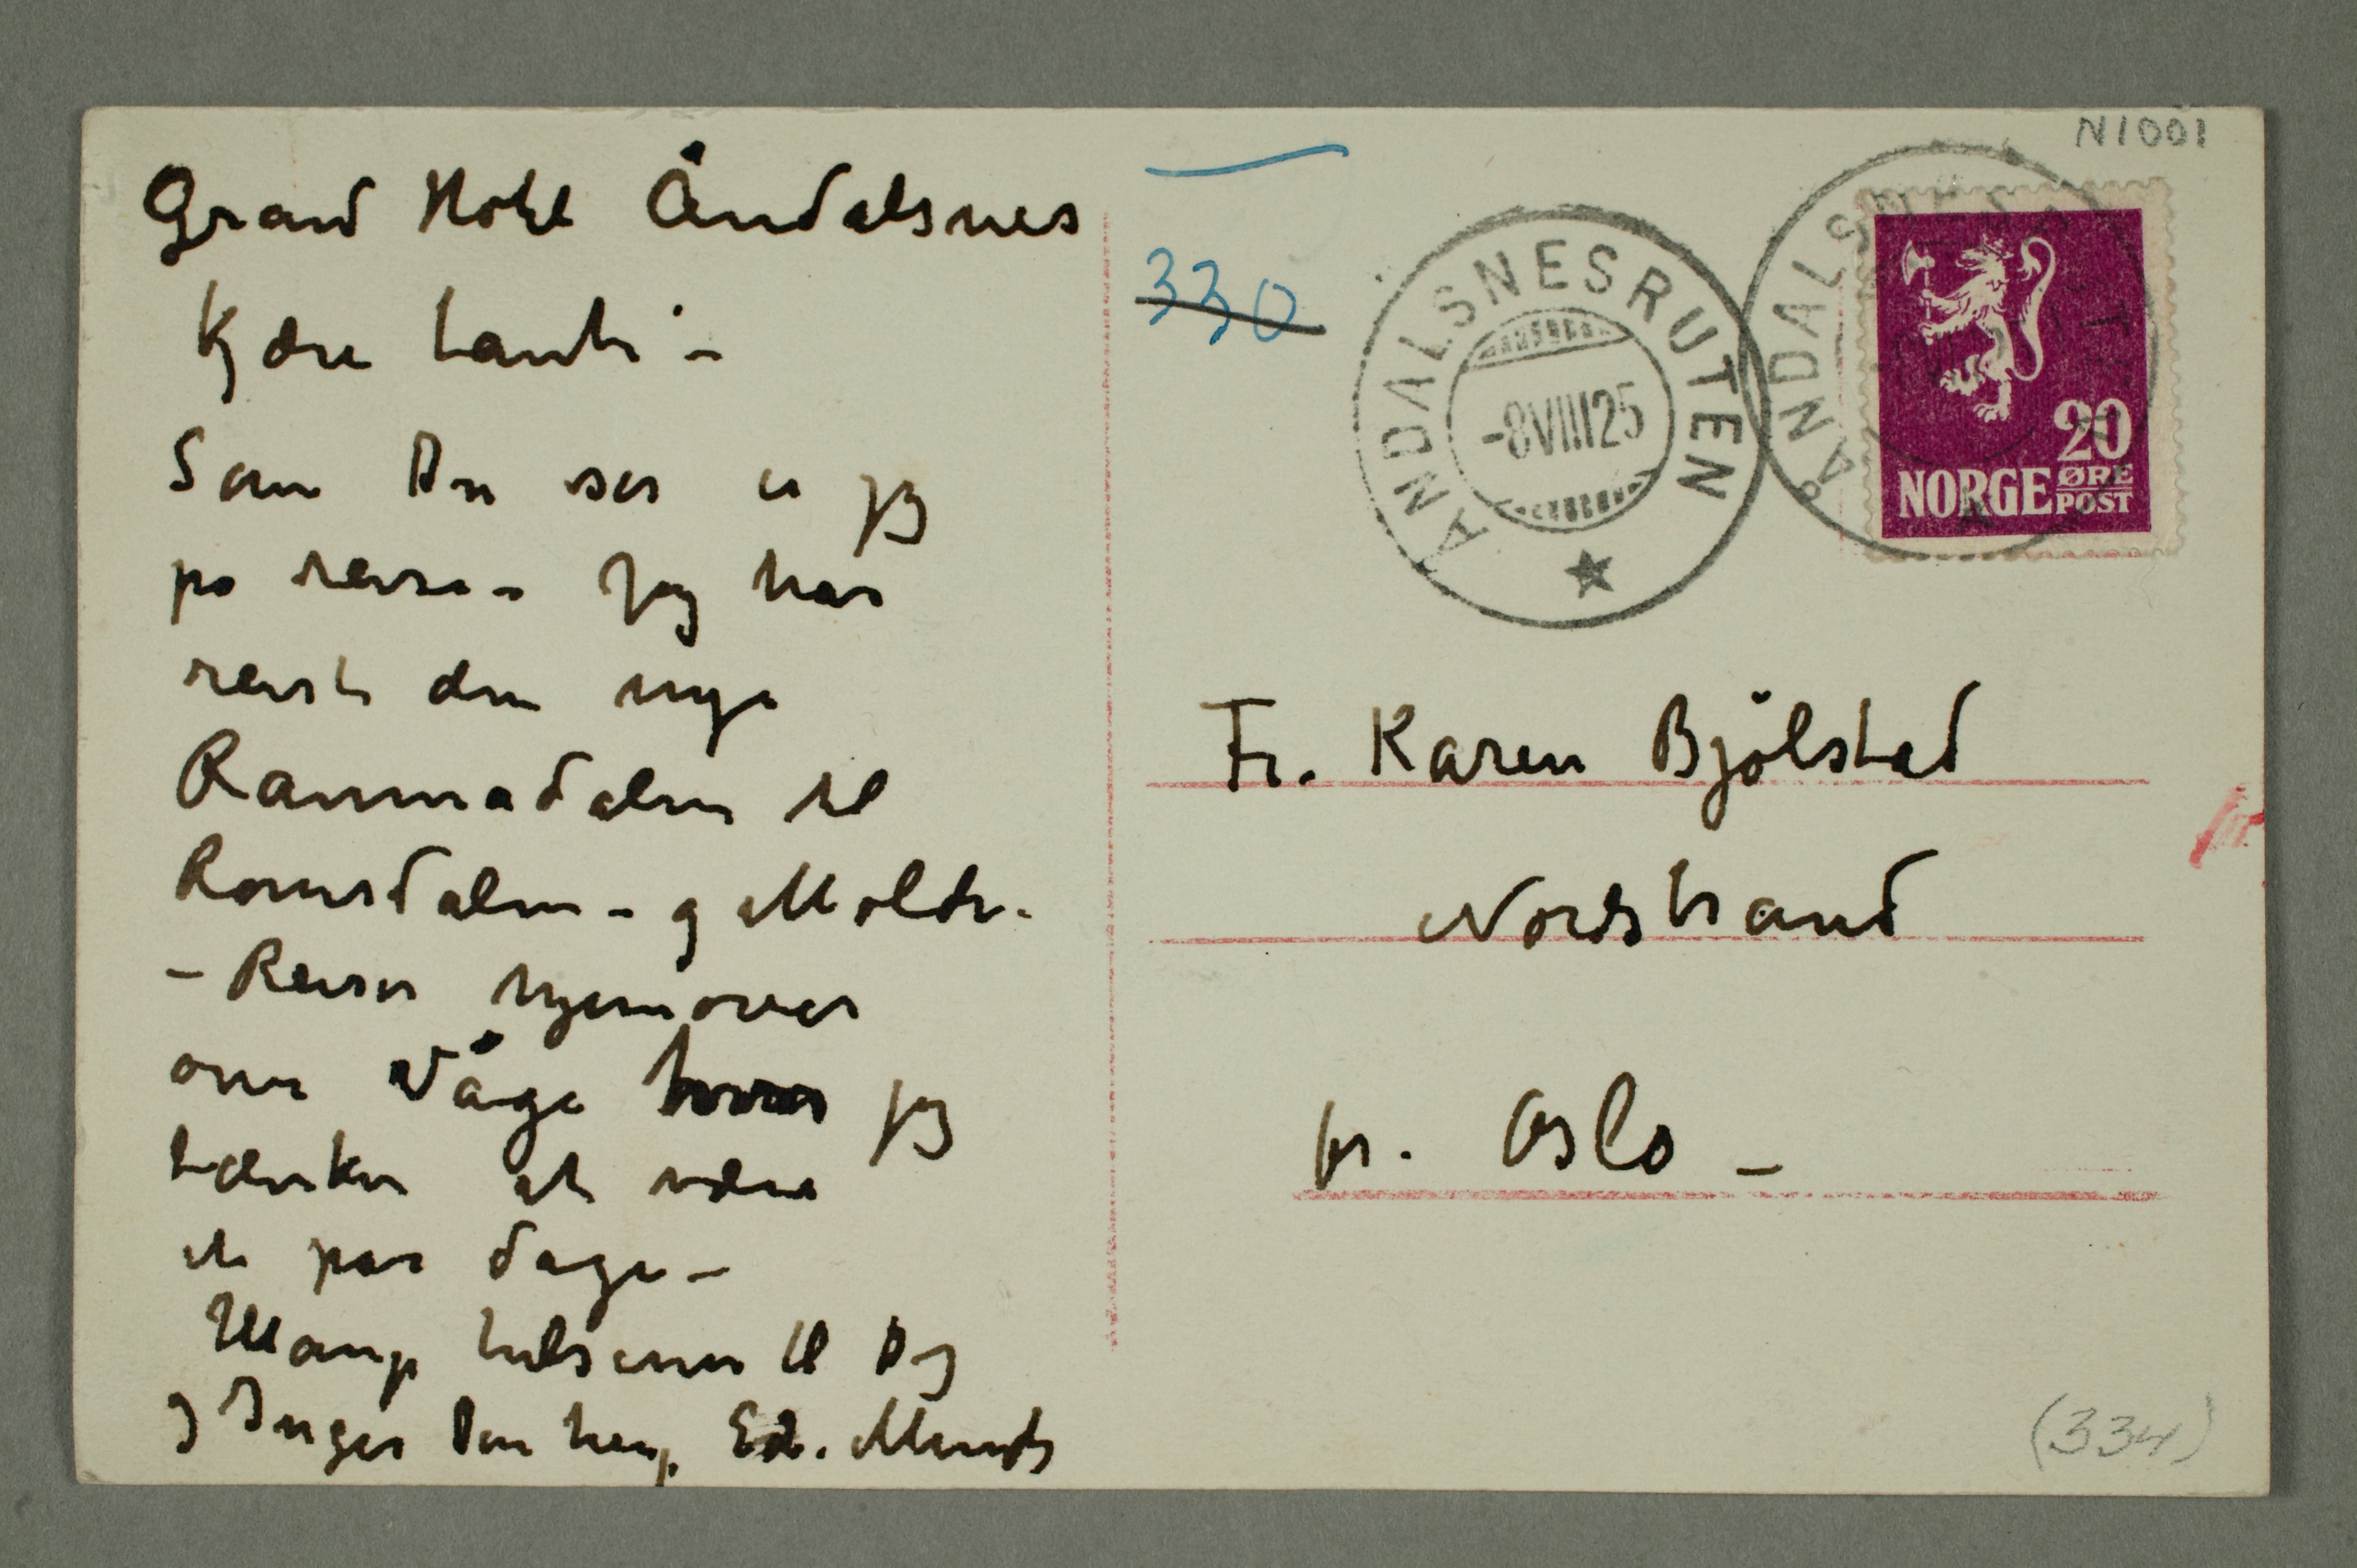 Grand Hotel Åndalsnes
Kjære tante –
Som Du ser er jeg
på reise – Jeg har
reist den nye
Raumadalen til
Romsdalen – og Molde –
– Reiser hjemover
om Vågå hvor jeg
tænker at være
et par dage –
Mange hilsener til Dig
og Inger Din heng. Edv. Munch
N1001
330
ÅNDALSNESRUTEN
-8VIII25
ÅNDALSNESRUTEN
20
NORGE ØRE POST
Fr. Karen Bjölstad
Nordstrand
pr. Oslo –
(334)